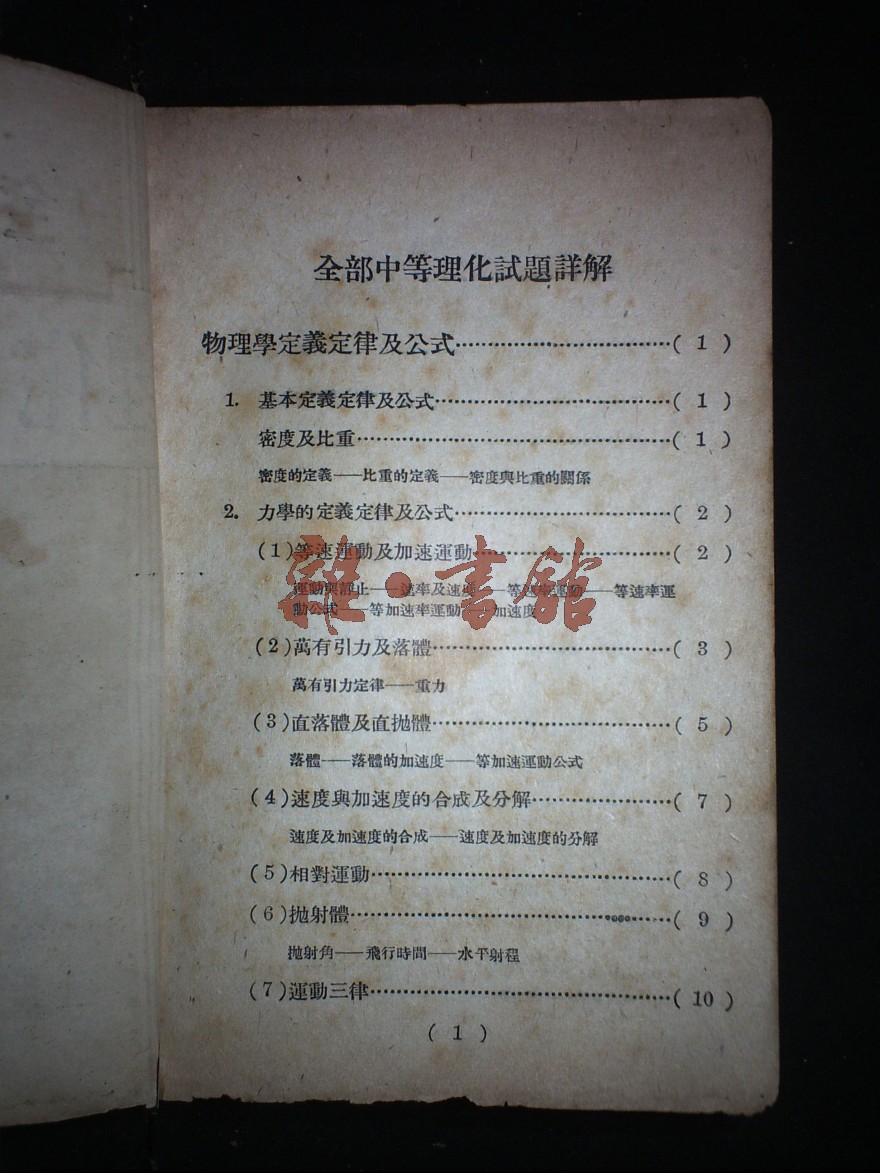 全部中等理化試題詳解
物理學定義定律及公式……………………………( 1 )
1. 基本定義定律及公式……………………………( 1 )
密度及比重……………………………………( 1 )
密度的定義——比重的定義——密度與比重的關係
2. 力學的定義定律及公式…………………………( 2 )
(1)等速運動及加速運動………………………( 2 )
運動與靜止——速率及速度——等速率運動——等速率運
動公式——等加速率運動——加速度
(2)萬有引力及落體……………………………( 3 )
萬有引力定律——重力
(3)直落體及直抛體……………………………( 5 )
落體——落體的加速度——等加速運動公式
(4)速度與加速度的合成及分解…………………( 7 )
速度及加速度的合成——速度及加速度的分解
(5)相對運動……………………………………( 8 )
(6)抛射體………………………………………( 9 )
抛射角——飛行時間——水平射程
(7)運動三律……………………………………( 10 )
( 1 )
雜·書館